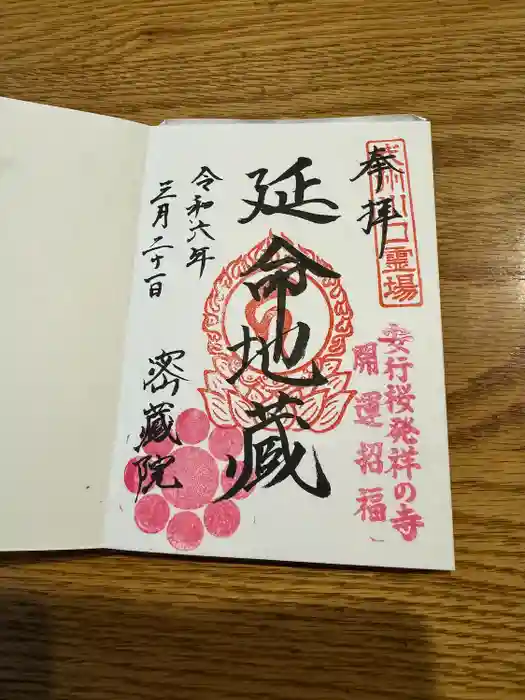 奉拝
武州川口霊場
安行桜発祥の寺
開運招福
延命地蔵
令和六年
三月二十一日
密蔵院